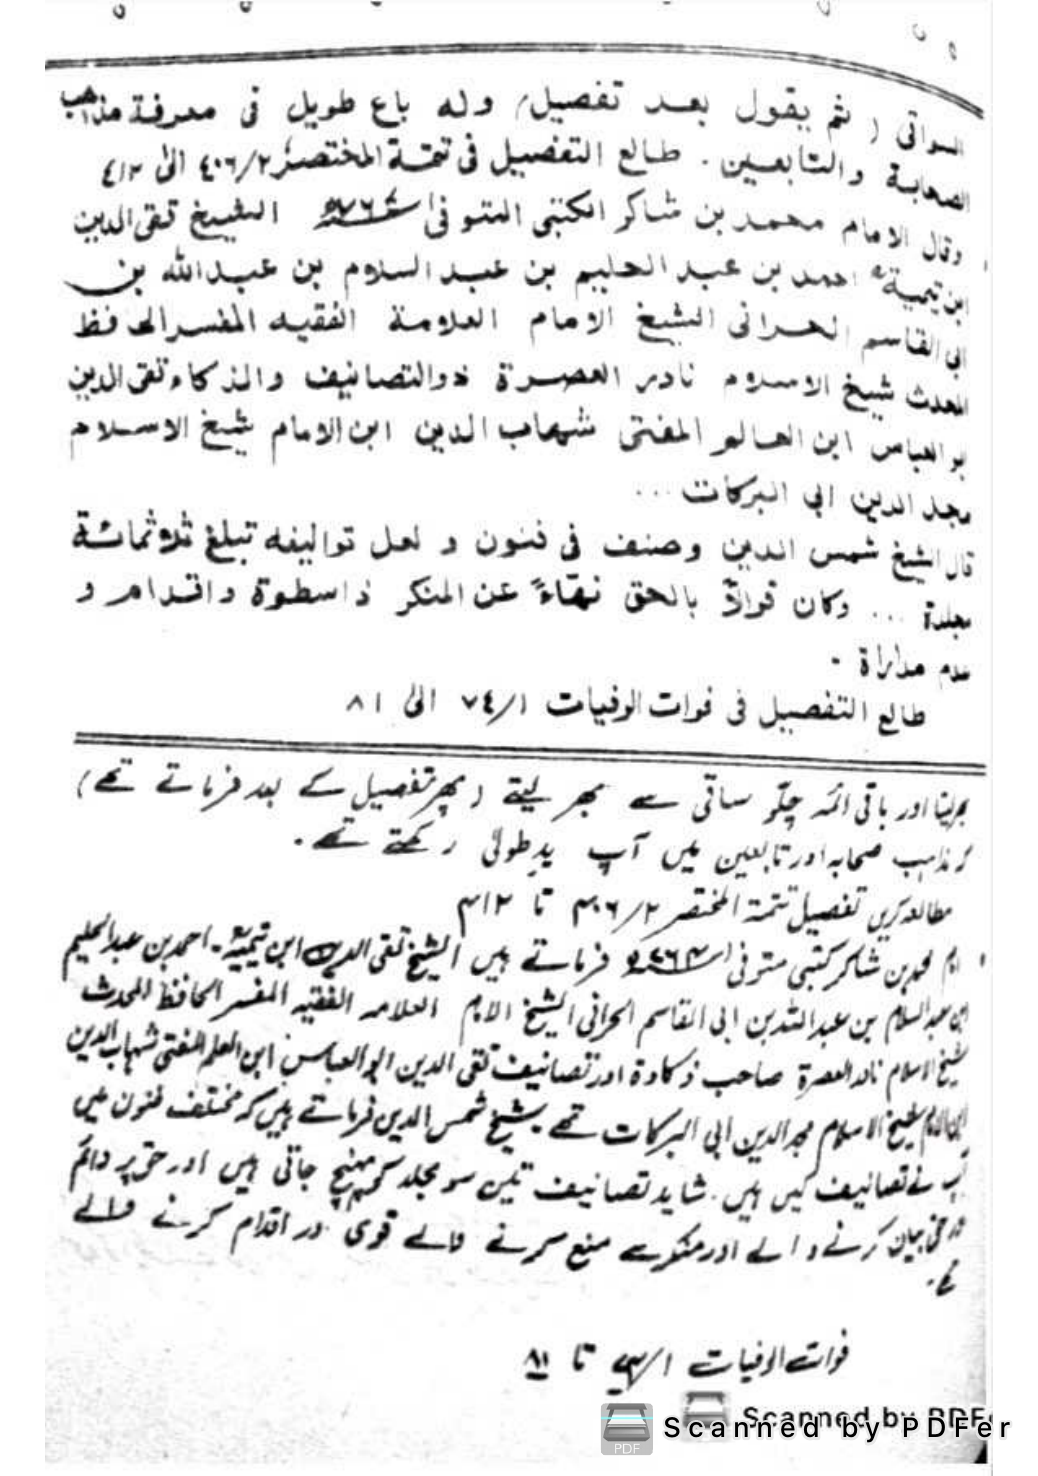 السواقی ( ثم یقول بعد تفصیل) وله باع طویل فی معرفة مذاهب
الصحابة والتابعین . طالع التفصیل فی تتمة المختصر ۴۰۶/۲ الیٰ ۴۱۳
وقال الامام محمد بن شاکر الکتبی المتوفی ۷۶۴ الشیخ تقی الدین
ابن تیمیة احمد بن عبد الحلیم بن عبد السلام بن عبد الله بن
ابی القاسم الحرانی الشیخ الامام العلامة الفقیه المفسر الحافظ
المحدث شیخ الاسلام نادر العصرة ذوالتصانیف والذکاء تقی الدین
بو العباس ابن العالم المفتی شهاب الدین ابن الامام شیخ الاسلام
مجد الدین ابی البرکات ...
قال الشیخ شمس الدین وصنف فی فنون و لعل توالیفه تبلغ ثلاثمائة
مجلدة ... وکان قوالاً بالحق نهّاءً عن المنکر ذا سطوة و اقدام و
عدم مداراة .
طالع التفصیل فی فوات الوفیات ۷۴/۱ الی ۸۱
بھر لینا اور باقی ائمہ چلّو ساقی سے بھر لیتے (پھر تفصیل کے بعد فرماتے تھے)
کہ مذاہب صحابہ اور تابعین میں آپ یدِ طولیٰ رکھتے تھے۔
مطالعہ کریں تفصیل تتمۃ المختصر ۴۰۶/۲ تا ۴۱۳
امام محمد بن شاکر کتبی متوفی ۷۶۴ فرماتے ہیں الشیخ تقی الدین ابن تیمیہ۔ احمد بن عبد الحلیم
ابن عبد السلام بن عبد اللہ بن ابی القاسم الحرانی الشیخ الامام العلامہ الفقیہ المفسر الحافظ المحدث
شیخ الاسلام نادر العصرۃ صاحب ذکاوۃ اور تصانیف تقی الدین ابو العباس ابن العلم المفتی شہاب الدین
ابن الامام شیخ الاسلام مجد الدین ابی البرکات تھے۔ شیخ شمس الدین فرماتے ہیں کہ مختلف فنون میں
آپ نے تصانیف کیں ہیں۔ شاید تصانیف تین سو مجلد تک پہنچ جاتی ہیں اور حق پر دائم
حق بیان کرنے والے اور منکر سے منع کرنے والے قوی اور اقدام کرنے والے
تھے۔
فوات الوفیات ۷۴/۱ تا ۸۱
Scanned by PDFer
Scanned by PDFer